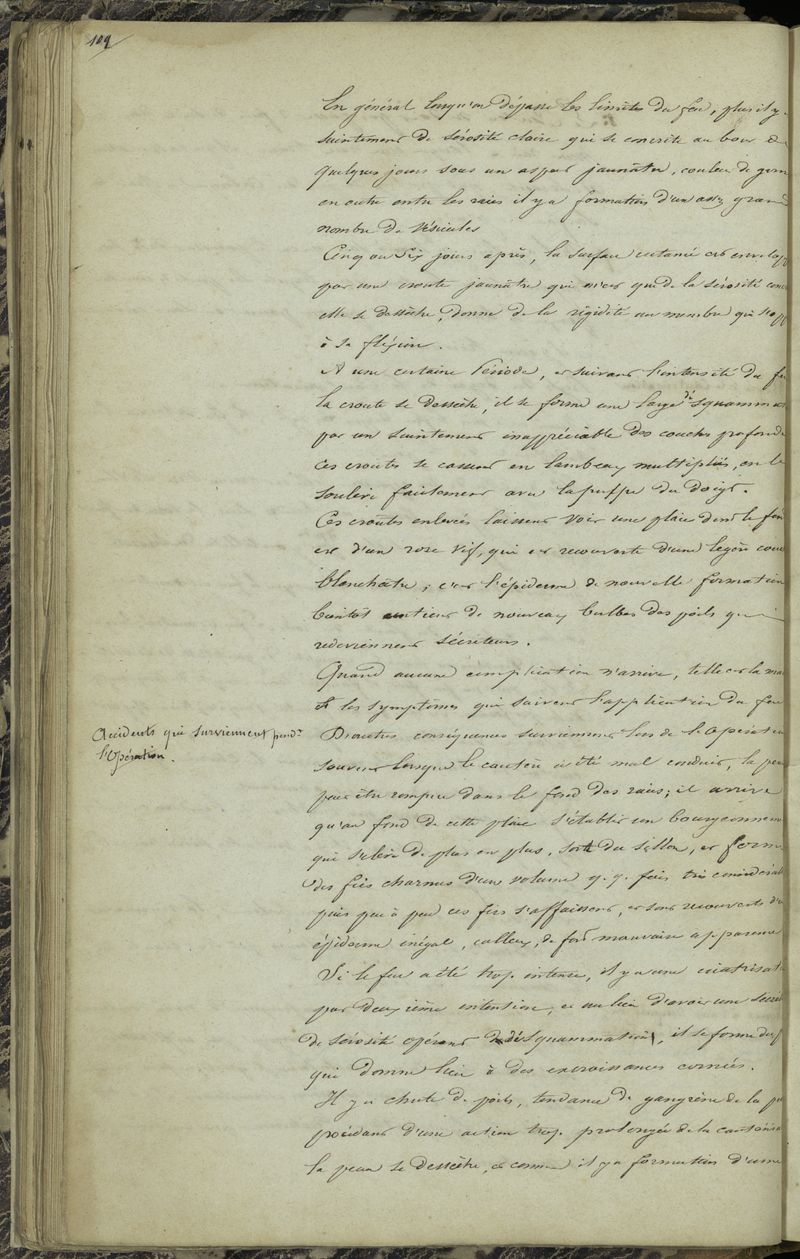 109
En général lorsqu'on dépasse les limites du feu, plus il y a
suintement de sérosité claire qui se concrète au bout de
quelques jours sous un aspect jaunâtre, couleur de
en outre entre les raies il y a formation d'un assez grand
nombre de vésicules
Cinq ou Six jours après, la surface cutanée est envelopp
par une croute jaunâtre qui n'est que de la sérosité conc
elle se dessèche, donne de la rigidité au membre qui s'opp
à sa flexion.
A une certaine Période, et suivant l'intensité du feu
la croute se dessèche, il se forme une large désquammat
par un suintement inappréciable des couches profonde
ces croutes se cassent en lambeaux multipliés, on le
soulève facilement avec la pulpe du doigt.
Ces croûtes enlevées laissent voir une plaie dont le fon
est d'un rose vif, qui est recouverte d'une légère couc
blanchâtre ; c'est l'épiderme de nouvelle formation
bientôt contient de nouveaux bulbes des poils qui
redeviennent sécréteurs.
Quand aucune complication n'arrive, telle est la mar
et les symptômes qui suivent l'application du feu
Accidents qui surviennent pend.t
l'Opération.
D'autres conséquences surviennent lors de l'Opération
souvent lorsque le cautère a été mal conduit, la peau
peut être rompue dans le fond des raies ; il arrive
qu'au fond de cette plaie s'établit un bourgeonnem
qui s'élève de plus en plus, sort du sillon, et forme
des fics charnus d'un volume q. q. fois très considérab
puis peu à peu ces fics s'affaissent, et sont recouverts d'u
épiderme inégal, calleux, de fort mauvaise apparence
Si le feu a été trop intense, il y a une cicatrisat
par deuxième intention, et au lieu d'avoir une sécré
de sérosité opérant désquammation, il se forme du p
qui donne lieu à des excroissances cornées.
Il y a chute de poils, tendance de gangrène de la p
provenant d'une action trop prolongée de la cautérisa
la peau se dessèche, et comme il y a formation d'une